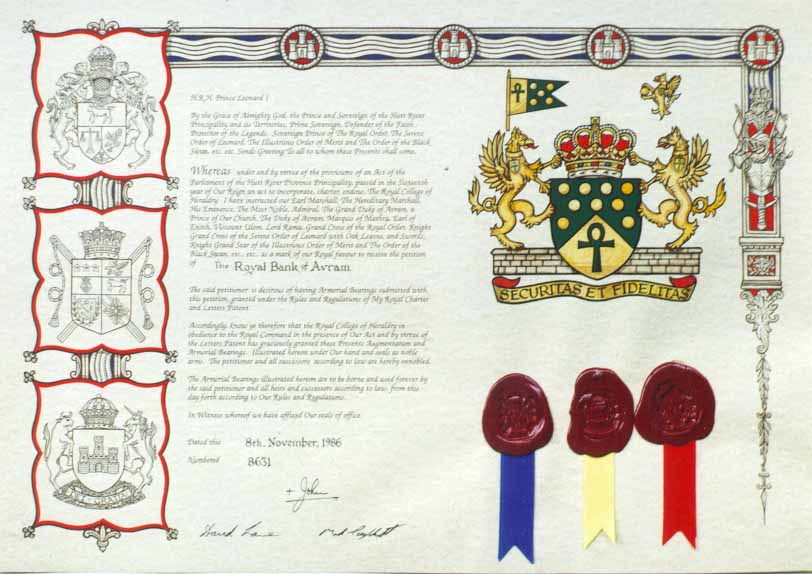 H.R.H. Prince Leonard I
By the Grace of Almighty God, the Prince and Sovereign of the Hutt River
Principality and its Territories, Prime Sovereign, Defender of the Faith,
Protector of the Legends, Sovereign Prince of The Royal Order, The Serene
Order of Leonard, The Illustrious Order of Merit and The Order of the Black
Swan, etc. etc. Sends Greeting To all to whom these Presents shall come.
Whereas under and by virtue of the provisions of an Act of the
Parliament of the Hutt River Province Principality, passed in the Sixteenth
year of Our Reign an act to incorporate, charter, endow, The Royal College of
Heraldry. I have instructed our Earl Marshall, The Hereditary Marshall,
His Eminence, The Most Noble, Admiral, The Grand Duke of Avram, a
Prince of Our Church, The Duke of Avram, Marquis of Matra, Earl of
Enoch, Viscount Ulom, Lord Rama, Grand Cross of the Royal Order, Knight
Grand Cross of the Serene Order of Leonard with Oak Leaves, and Swords,
Knight Grand Star of the Illustrious Order of Merit and The Order of the
Black Swan, etc. etc. as a mark of our Royal favour to receive the petition
of The Royal Bank of Avram
The said petitioner is desirous of having Armorial Bearings submitted with
this petition, granted under the Rules and Regulations of My Royal Charter
and Letters Patent
Accordingly, know ye therefore that the Royal College of Heraldry in
obedience to the Royal Command in the presence of Our Act and by virtue of
the Letters Patent has graciously granted these Presents Augmentation and
Armorial Bearings. Illustrated hereon under Our Hand and seals as noble
arms. The petitioner and all successors according to law are hereby ennobled.
The Armorial Bearings illustrated hereon are to be borne and used forever by
the said petitioner and all heirs and successors according to law, from this
day forth according to Our Rules and Regulations.
In Witness whereof we have affixed Our seals of office.
Dated this 8th. November, 1986
Numbered 8631
+ John
SECURITAS ET FIDELITAS